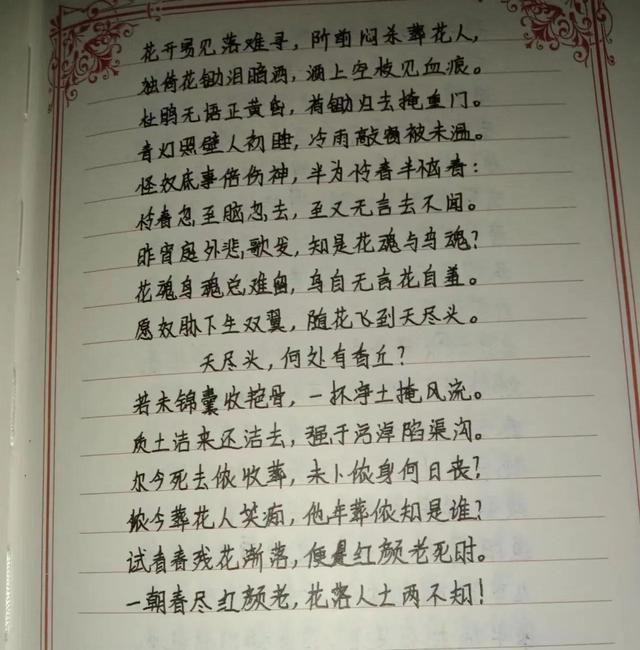 花开易见落难寻，阶前闷杀葬花人，
独倚花锄泪暗洒，洒上空枝见血痕。
杜鹃无语正黄昏，荷锄归去掩重门。
青灯照壁人初睡，冷雨敲窗被未温。
怪奴底事倍伤神，半为怜春半恼春：
怜春忽至恼忽去，至又无言去不闻。
昨宵庭外悲歌发，知是花魂与鸟魂？
花魂鸟魂总难留，鸟自无言花自羞。
愿奴胁下生双翼，随花飞到天尽头。
天尽头，何处有香丘？
若未锦囊收艳骨，一抔净土掩风流。
质土洁来还洁去，强于污淖陷渠沟。
尔今死去侬收葬，未卜侬身何日丧？
侬今葬花人笑痴，他年葬侬知是谁？
试看春残花渐落，便是红颜老死时。
一朝春尽红颜老，花落人亡两不知！